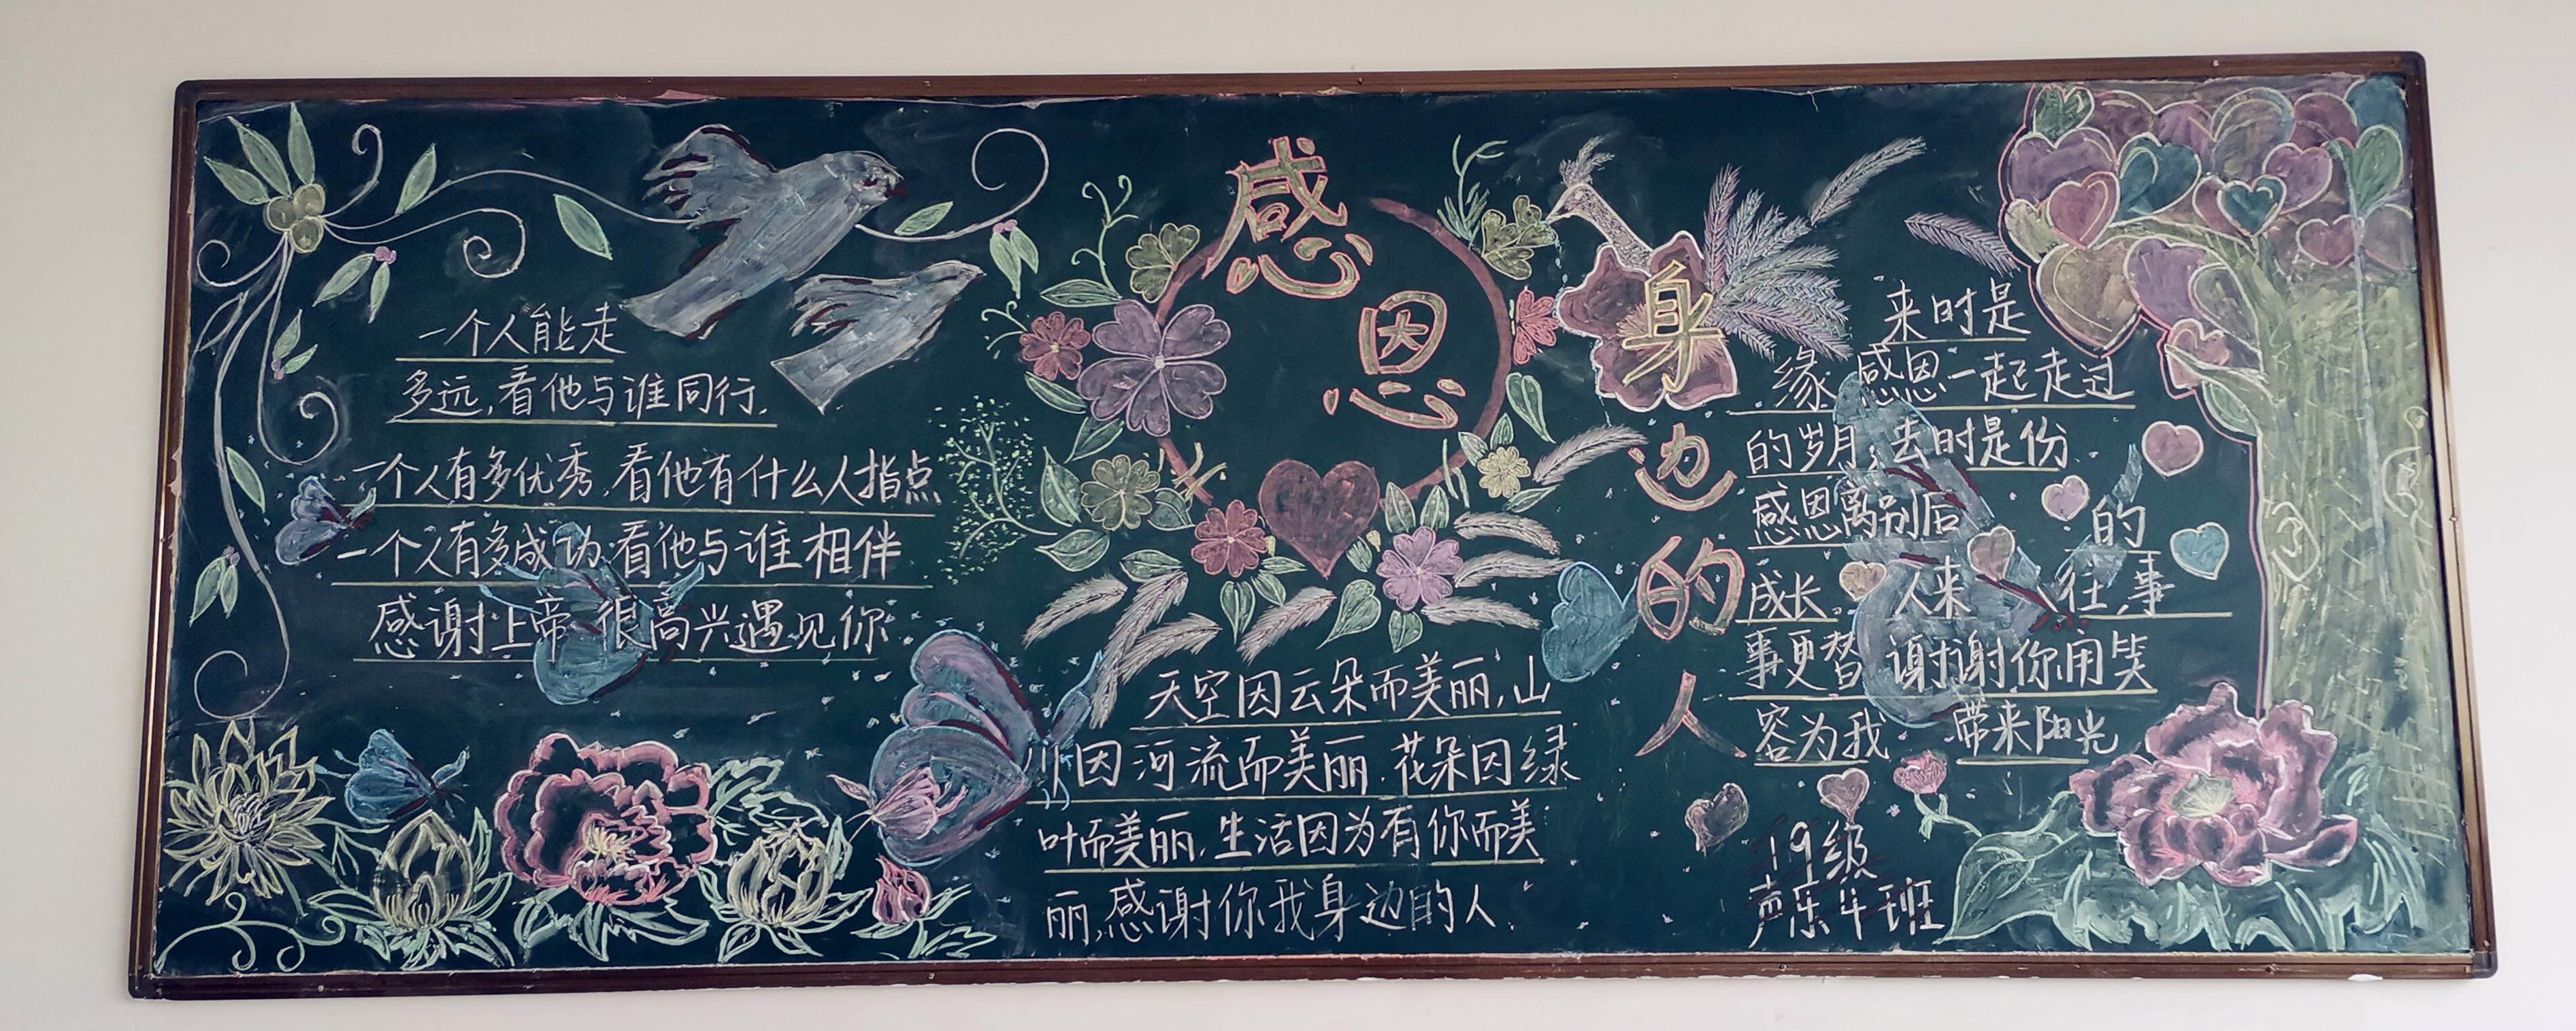 感恩
身边的人
一个人能走
多远,看他与谁同行,
一个人有多优秀,看他有什么人指点
一个人有多成功,看他与谁相伴
感谢上帝 很高兴遇见你
天空因云朵而美丽,山
川因河流而美丽,花朵因绿
叶而美丽,生活因为有你而美
丽,感谢你我身边的人.
来时是
缘 感恩一起走过
的岁月,去时是份
感恩离别后 的
成长 人来人往,事
事更替 谢谢你用笑
容为我 带来阳光
19级
声乐4班